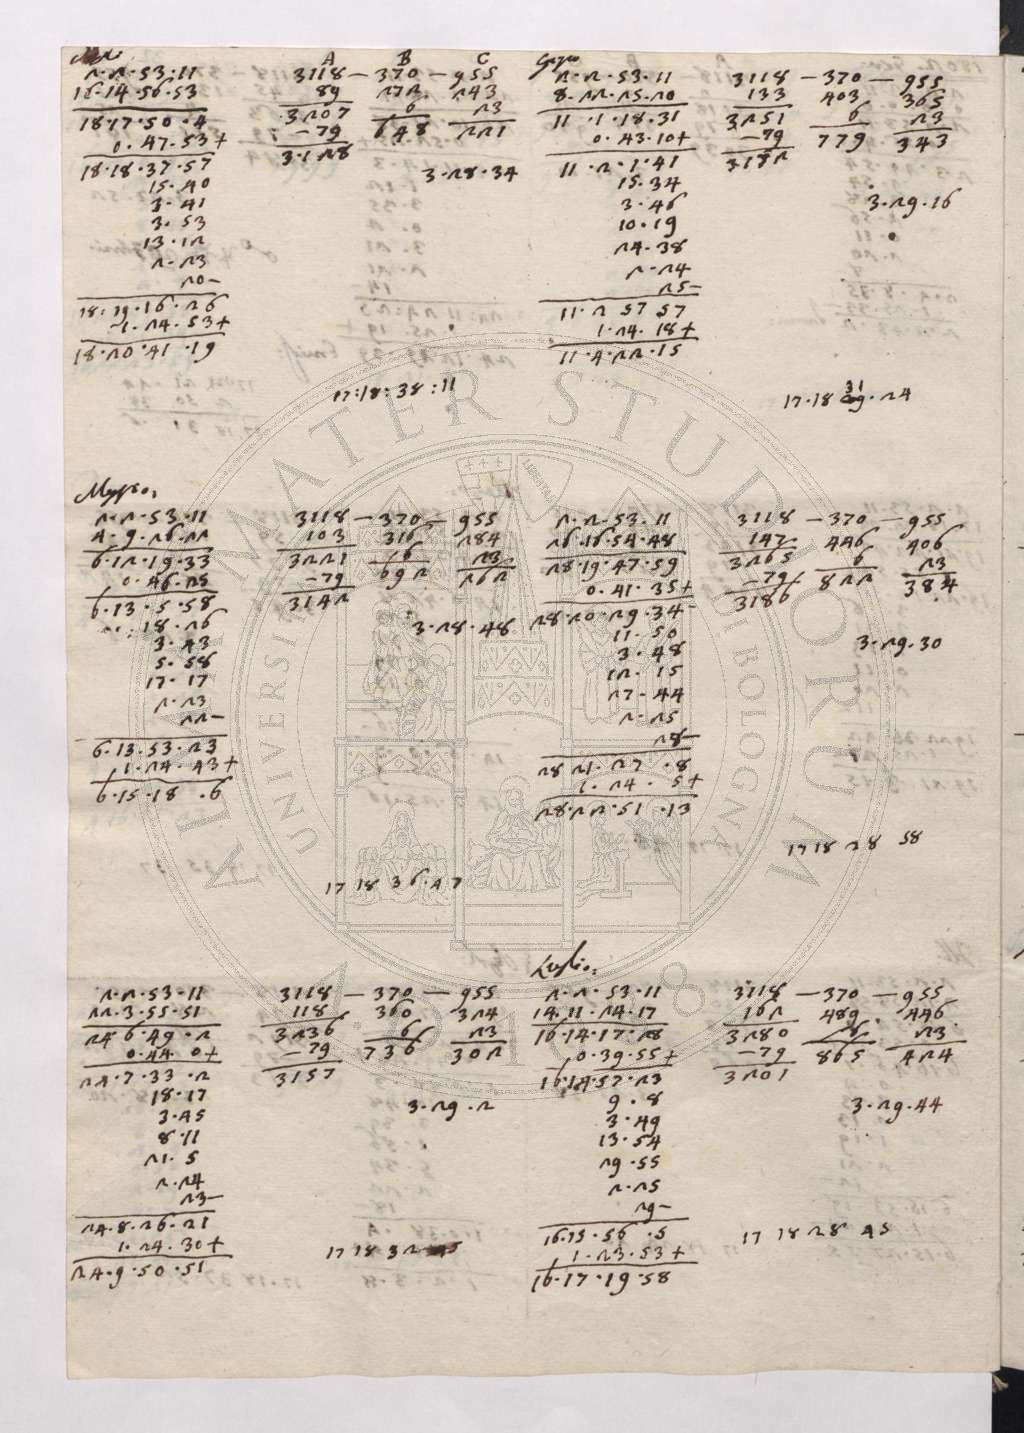 2.2.53.11
16.14.56.53
18 17.50.4
0.47.53+
18.18.37.57
15.40
3.41
3.53
13.12
2.23
20–
18.19.16.26
1.24.53+
18.20.41.19
A B C
3118 – 370 – 955
89 272 243
3207 6 23
–79 648 221
3128
3.28.34
17:18:38:11
2.2.53.11
8.22.25.20
11.1.18.31
0.43.10+
11.2.1.41
15.34
3.46
10.19
24.38
2.24
25–
11.2 57 57
1.24.18+
11.4.22.15
3118 – 370 – 955
133 403 365
3251 6 23
–79 779 343
3172
3.29.16
31
17.18 29.24
Maggio.
2.2.53.11
4.9.26.22
6.12.19.33
0.46.25
6.13.5.58
18.26
3.43
5.58
17.17
2.23
22–
6.13.53.23
1.24.43+
6.15.18.6
3118 – 370 – 955
103 316 284
3221 6 23
–79 692 262
3142
3.28.48
17 18 36.47
2.2.53.11
26.16.54.48
28.19.47.59
0.41.35+
28.20.29.34
11.50
3.48
12.15
27.44
2.25
28–
28 21.27.8
1.24.5+
28.22.51.13
3118 – 370 – 955
147 446 406
3265 6 23
–79 822 384
3186
3.29.30
17 18 28 58
2.2.53.11
22.3.55.51
24 6.49.2
0.44.0+
24.7.33.2
18.17
3.45
8.11
21.5
2.24
23–
24.8.26.21
1.24.30+
24.9.50.51
3118 – 370 – 955
118 360 324
3236 6 23
–79 736 302
3157
3.29.2
17 18 32 45
Luglio.
2.2.53.11
14.11.24.17
16.14.17.28
0.39.55+
16.14 57.23
9.8
3.49
13.54
29.55
2.25
29–
16.15.56.5
1.23.53+
16.17.19.58
3118 – 370 – 955
162 489 446
3280 6 23
–79 865 424
3201
3.29.44
17 18 28 45
ALMA MATER STUDIORUM
UNIVERSITÀ DI BOLOGNA
A.D. 1088